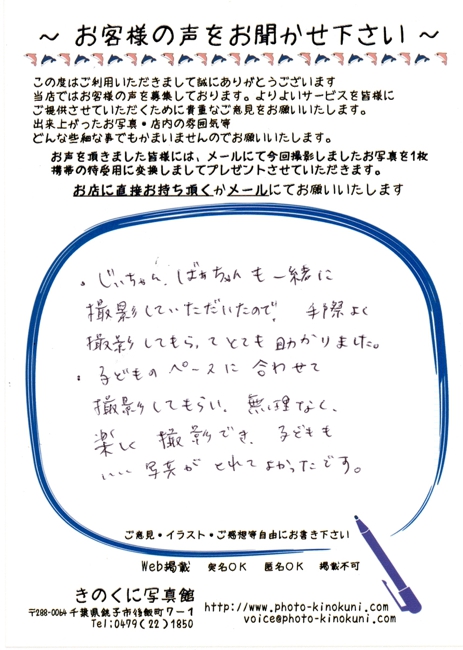 ～ お客様の声をお聞かせ下さい ～
この度はご利用いただきまして誠にありがとうございます
当店ではお客様の声を募集しております。よりよいサービスを皆様に
ご提供させていただくために貴重なご意見をお願いいたします。
出来上がったお写真・店内の雰囲気等
どんな些細な事でもかまいませんのでお願いいたします。
お声を頂きました皆様には、メールにて今回撮影しましたお写真を1枚
携帯の待受用に変換しましてプレゼントさせていただきます。
お店に直接お持ち頂くかメールにてお願いいたします
・じいちゃん、ばあちゃんも一緒に
撮影していただいたので、手際よく
撮影してもらってとても助かりました。
・子どものペースに合わせて
撮影してもらい、無理なく、
楽しく撮影でき、子どもも
いい写真がとれてよかったです。
ご意見・イラスト・ご感想等自由にお書き下さい
Web掲載 実名OK 匿名OK 掲載不可
きのくに写真館
〒288-0064 千葉県銚子市後飯町7－1
Tel:0479(22)1850
http://www.photo-kinokuni.com
voice@photo-kinokuni.com